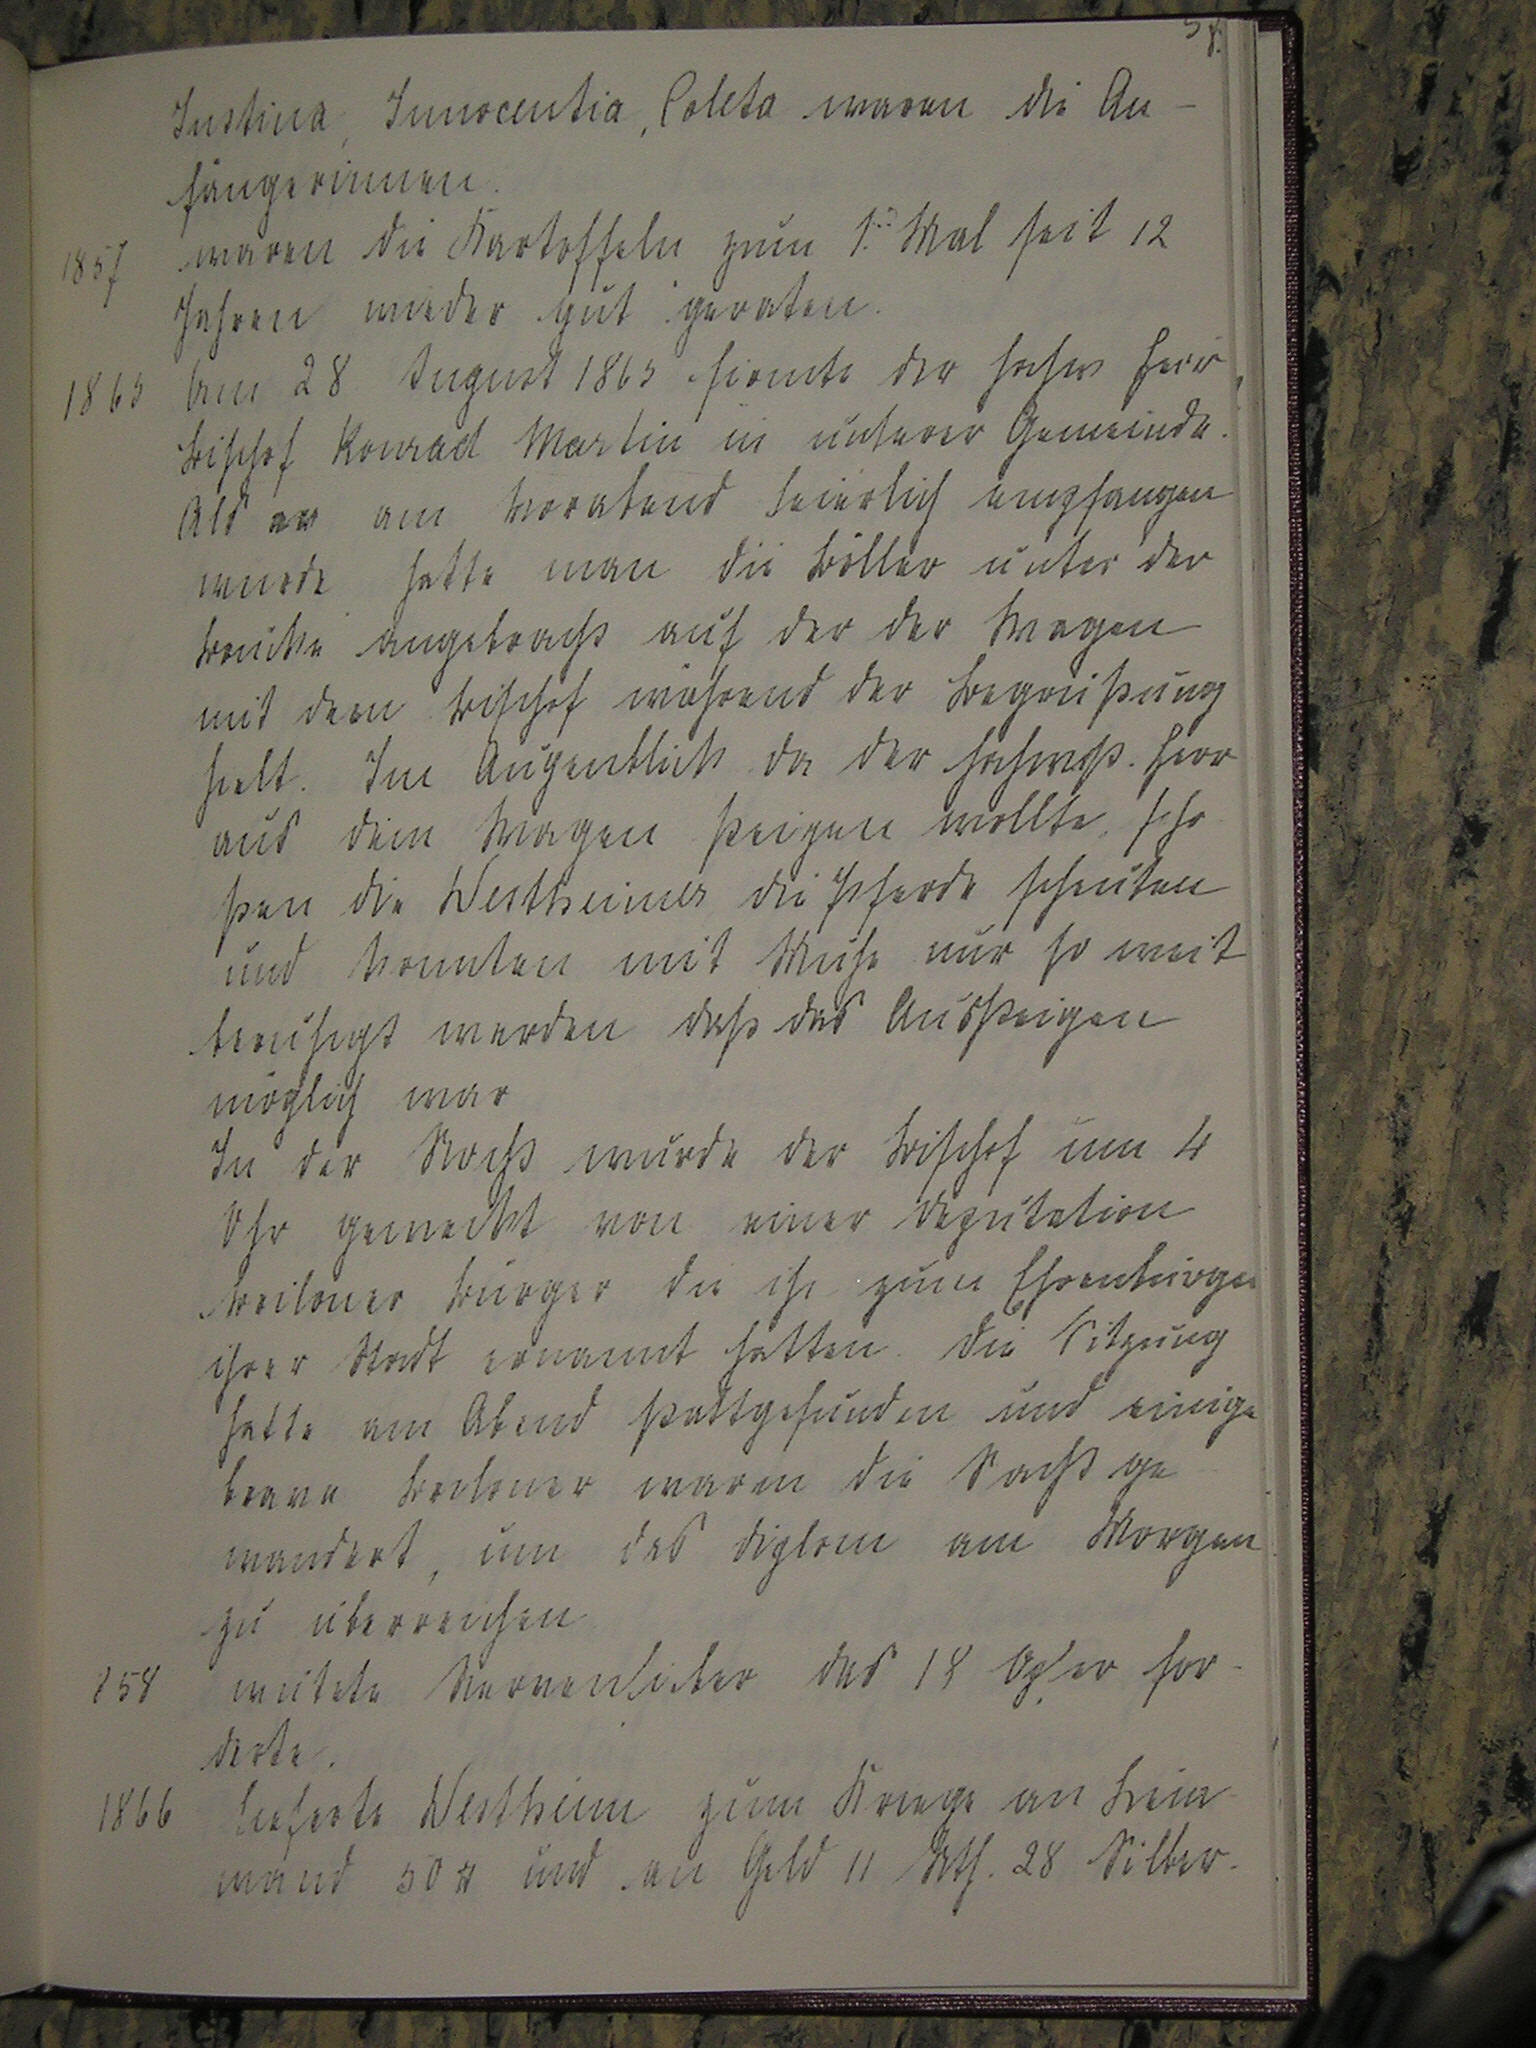 58.
Justina, Innocentia, Coleta waren die An-
fängerinnen.
1857 waren die Kartoffeln zum 1. Mal seit 12
Jahren wieder gut geraten.
1865 Am 28. August 1865 firmte der hochw Herr
Bischof Konrad Martin in unserer Gemeinde.
Als er am Vorabend feierlich empfangen
wurde hatte man die Böller unter der
Brücke angebracht auf der der Wagen
mit dem Bischof während der Begrüßung
hielt. Im Augenblick da der hochwst. Herr
aus dem Wagen steigen wollte, scho
ßen die Westheimer, die Pferde scheuten
und konnten mit Mühe nur so weit
beruhigt werden daß das Aussteigen
möglich war
In der Nacht wurde der Bischof um 4
Uhr geweckt von einer Deputation
Briloner Bürger die ihn zum Ehrenbürger
ihrer Stadt ernannt hatten. Die Sitzung
hatte am Abend stattgefunden und einige
brave Briloner waren die Nacht ge
wandert, um das Diplom am Morgen
zu überreichen
858 wütete Nervenfieber das 18 Opfer for-
derte.
1866 lieferte Westheim zum Kriege an Lein-
wand 50 ℔ und an Geld 11 Rth. 28 Silber-